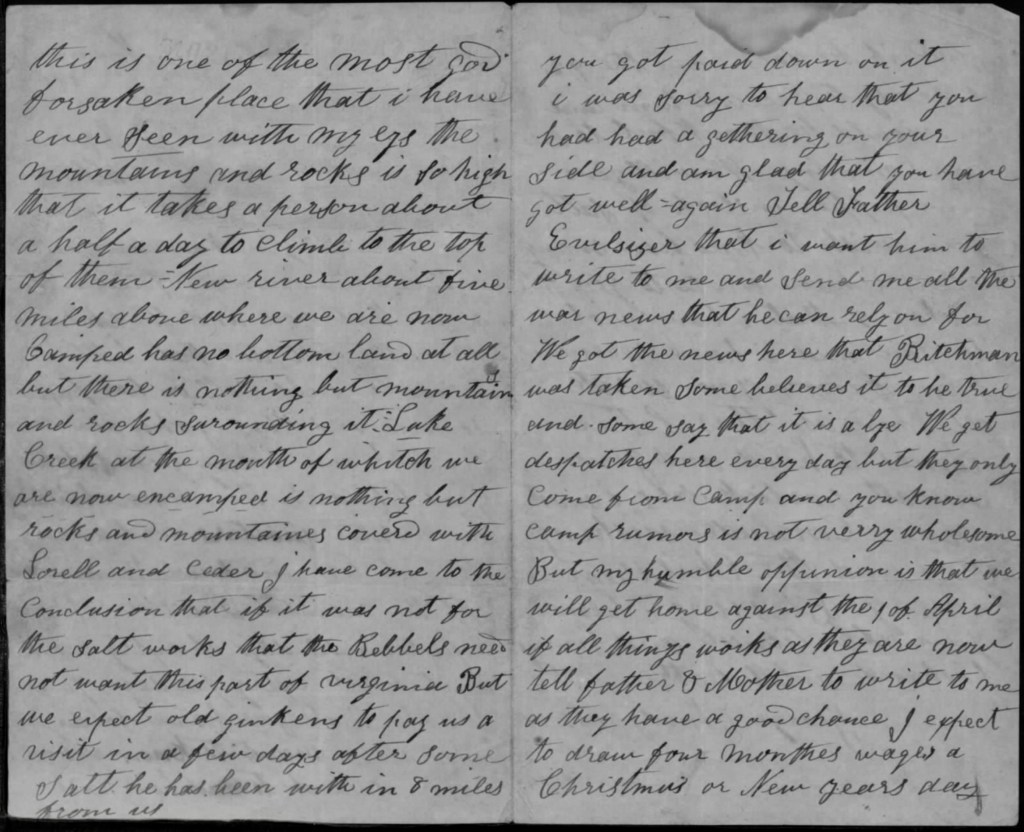 this is one of the most god
forsaken place that i have
ever seen with my eys the
mountains and rocks is so high
that it takes a person about
a half a day to climb to the top
of them - New river about five
miles above where we are now
Camped has no bottom land at all
but there is nothing but mountains
and rocks surounding it - Luke
Creek at the mouth of whitch we
are now encamped is nothing but
rocks and mountaines coverd with
Lorell and Ceder J have come to the
Conclusion that if it was not for
the salt works that the Rebbels need
not want this part of virginia But
we expect old ginkens to pay us a
visit in a few days after some
Salt he has been with in 8 miles
from us
you got paid down on it
i was sorry to hear that you
had had a gethering on your
side and am glad that you have
got well - again Tell Father
Evilsizer that i want him to
write to me and send me all the
war news that he can rely on for
We got the news here that Ritchman
was taken some believes it to be true
and some say that it is a lye We get
despatches here every day but they only
Come from Camp and you know
camp rumors is not verry wholesome
But my humble oppinion is that we
will get home against the 1 of April
if all things works as they are now
tell father & Mother to write to me
as they have a good chance J expect
to draw four monthes wages a
Christmis or New years day